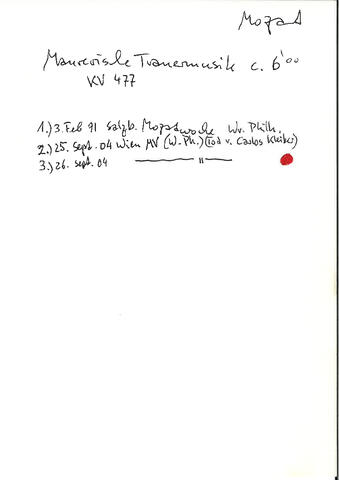 Mozart
Maurerische Trauermusik c. 6'00
KV 477
1.) 3. Feb 91 Salzb. Mozartwoche Wr. Phil.
2.) 25. Sept. 04 Wien MV (W. Ph.) (Tod v. Carlos Kleiber)
3.) 26. Sept. 04 —— " ——